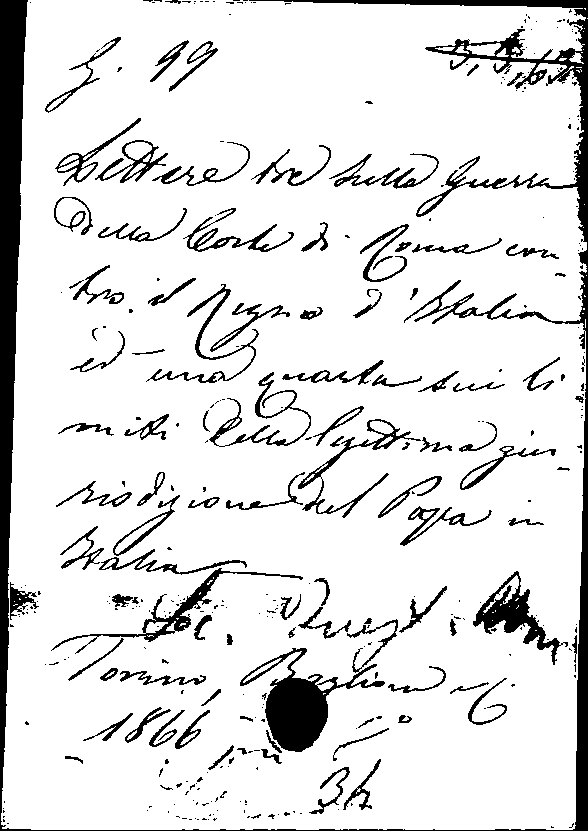 G. 99 5,3,63
Lettere tre sulla Guerra
della Corte di Roma con-
tro il Regno d'Italia
ed una quarta sui li
miti della legittima giu-
risdizione del Papa in
Italia
Loc.
Torino, Baglione e C.
1866
34